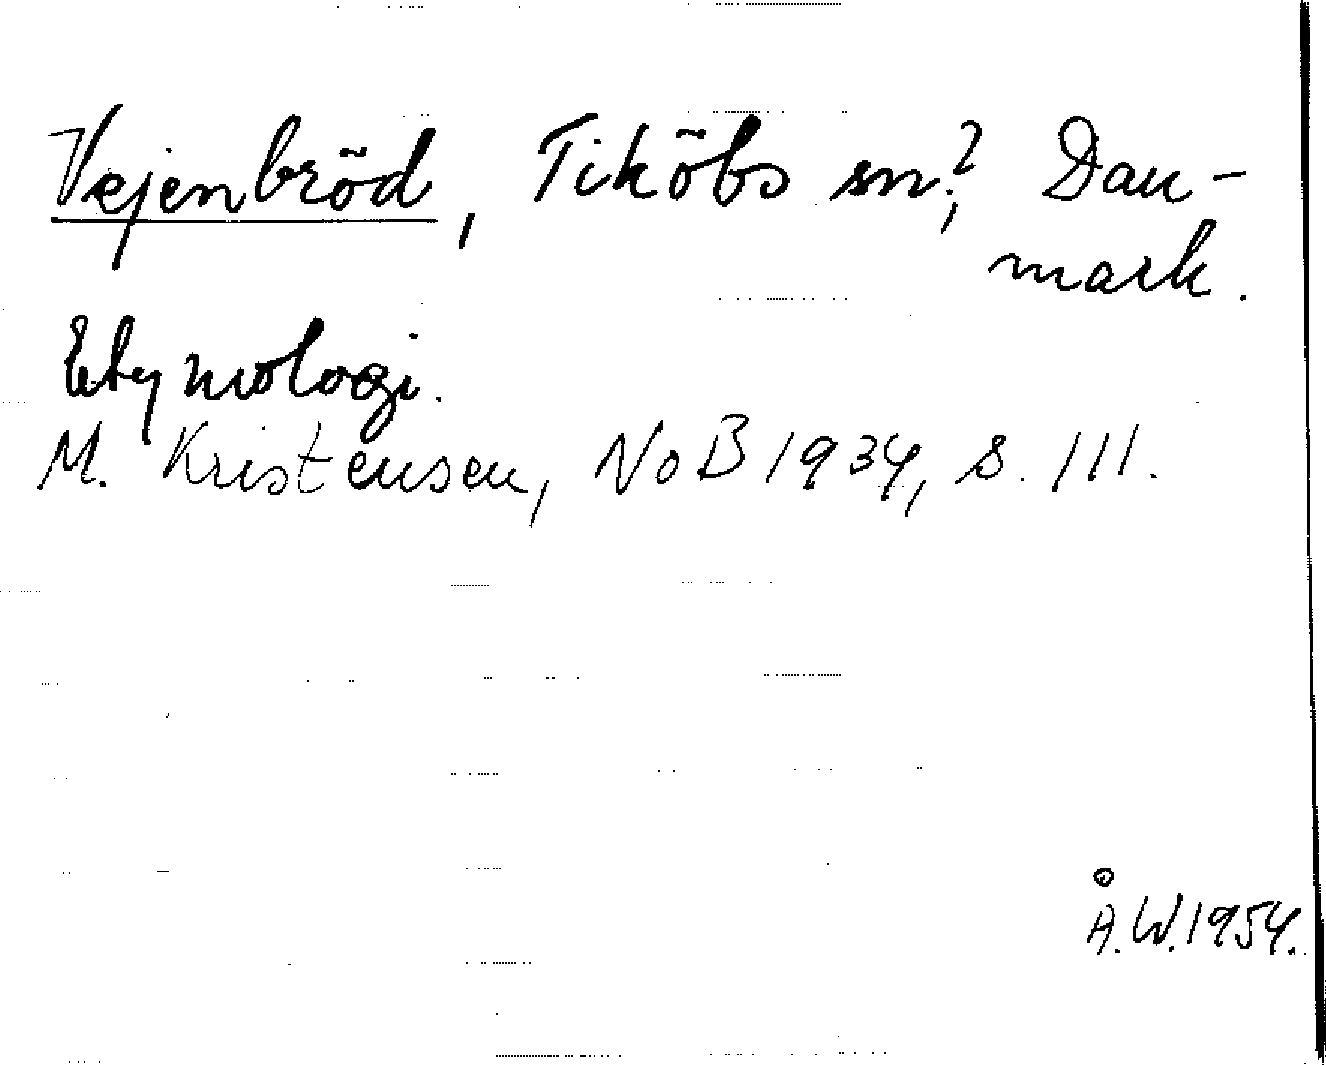 Vejenbröd, Tiköbs sn?, Dan-
mark.
Etymologi.
M. Kristensen, NoB 1934, s. 111.
Å.W. 1954.